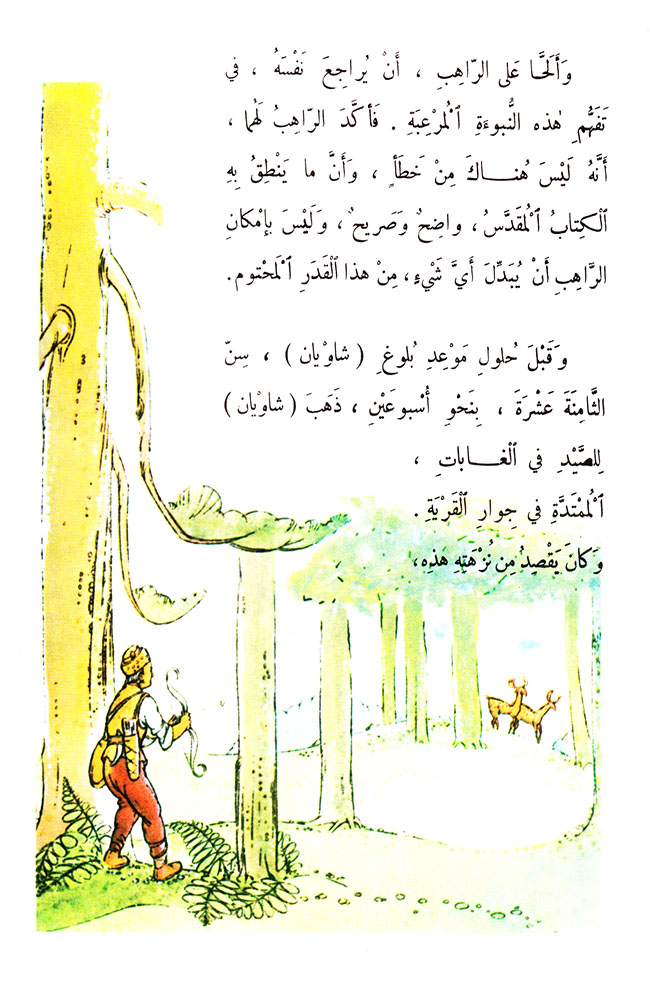 وَأَلَحَّــا عَلى الرّاهِبِ ، أَنْ يُراجِعَ نَفْسَهُ ، في
تَفَهُّمِ هٰذه النُّبوءَةِ ٱلْمُرْعِبَةِ . فَأَكَّدَ الرّاهِبُ لَهُما ،
أَنَّهُ لَيْسَ هُنــــاكَ مِنْ خَطَأٍ ، وَأَنَّ ما يَنْطِقُ بِهِ
ٱلْكِتابُ ٱلْمُقَدَّسُ ، واضِحٌ وَصَريحٌ ، وَلَيْسَ بِإِمْكانِ
الرَّاهِبِ أَنْ يُبَدِّلَ أَيَّ شَيْءٍ ، مِنْ هذا ٱلْقَدَرِ ٱلْمَحْتوم .
وَقَبْلَ حُلولِ مَوْعِدِ بُلوغِ ( شاوْيان ) ، سِنّ
الثَّامِنَةَ عَشْرَةَ ، بِنَحْوِ أُسْبوعَيْنِ ، ذَهَبَ ( شاوْيان )
لِلصَّيْدِ في ٱلْغــــاباتِ ،
ٱلْمُمْتَدَّةِ في جِوارِ ٱلْقَرْيَةِ .
وَكانَ يَقْصِدُ مِن نُزْهَتِهِ هذِه ،